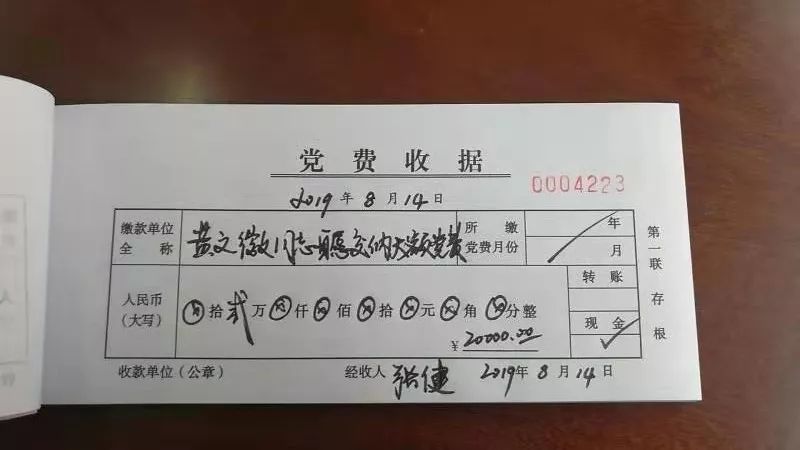 党费收据
0004223
2019年8月14日
缴款单位全称 黄文徽同志自愿交纳大额党费 所缴党费月份 年 月
人民币(大写) ⊗拾贰万⊗仟⊗佰⊗拾⊗元⊗角⊗分整
¥20000.00
转账
现金 ✓
收款单位(公章) 经收人 张健 2019年8月14日
第一联 存根